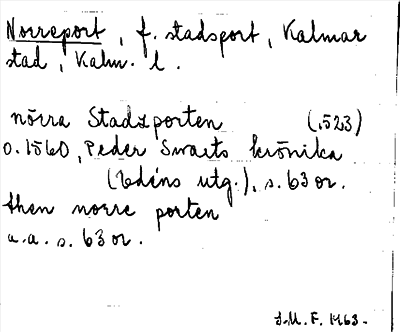 Norreport, f. stadsport, Kalmar
stad, Kalm. l.
nörra Stadzporten (1523)
o. 1560, Peder Swarts krönika
(Edéns utg.), s. 63 or.
then norre porten
a.a. s. 63 or.
S.M. F. 1963.